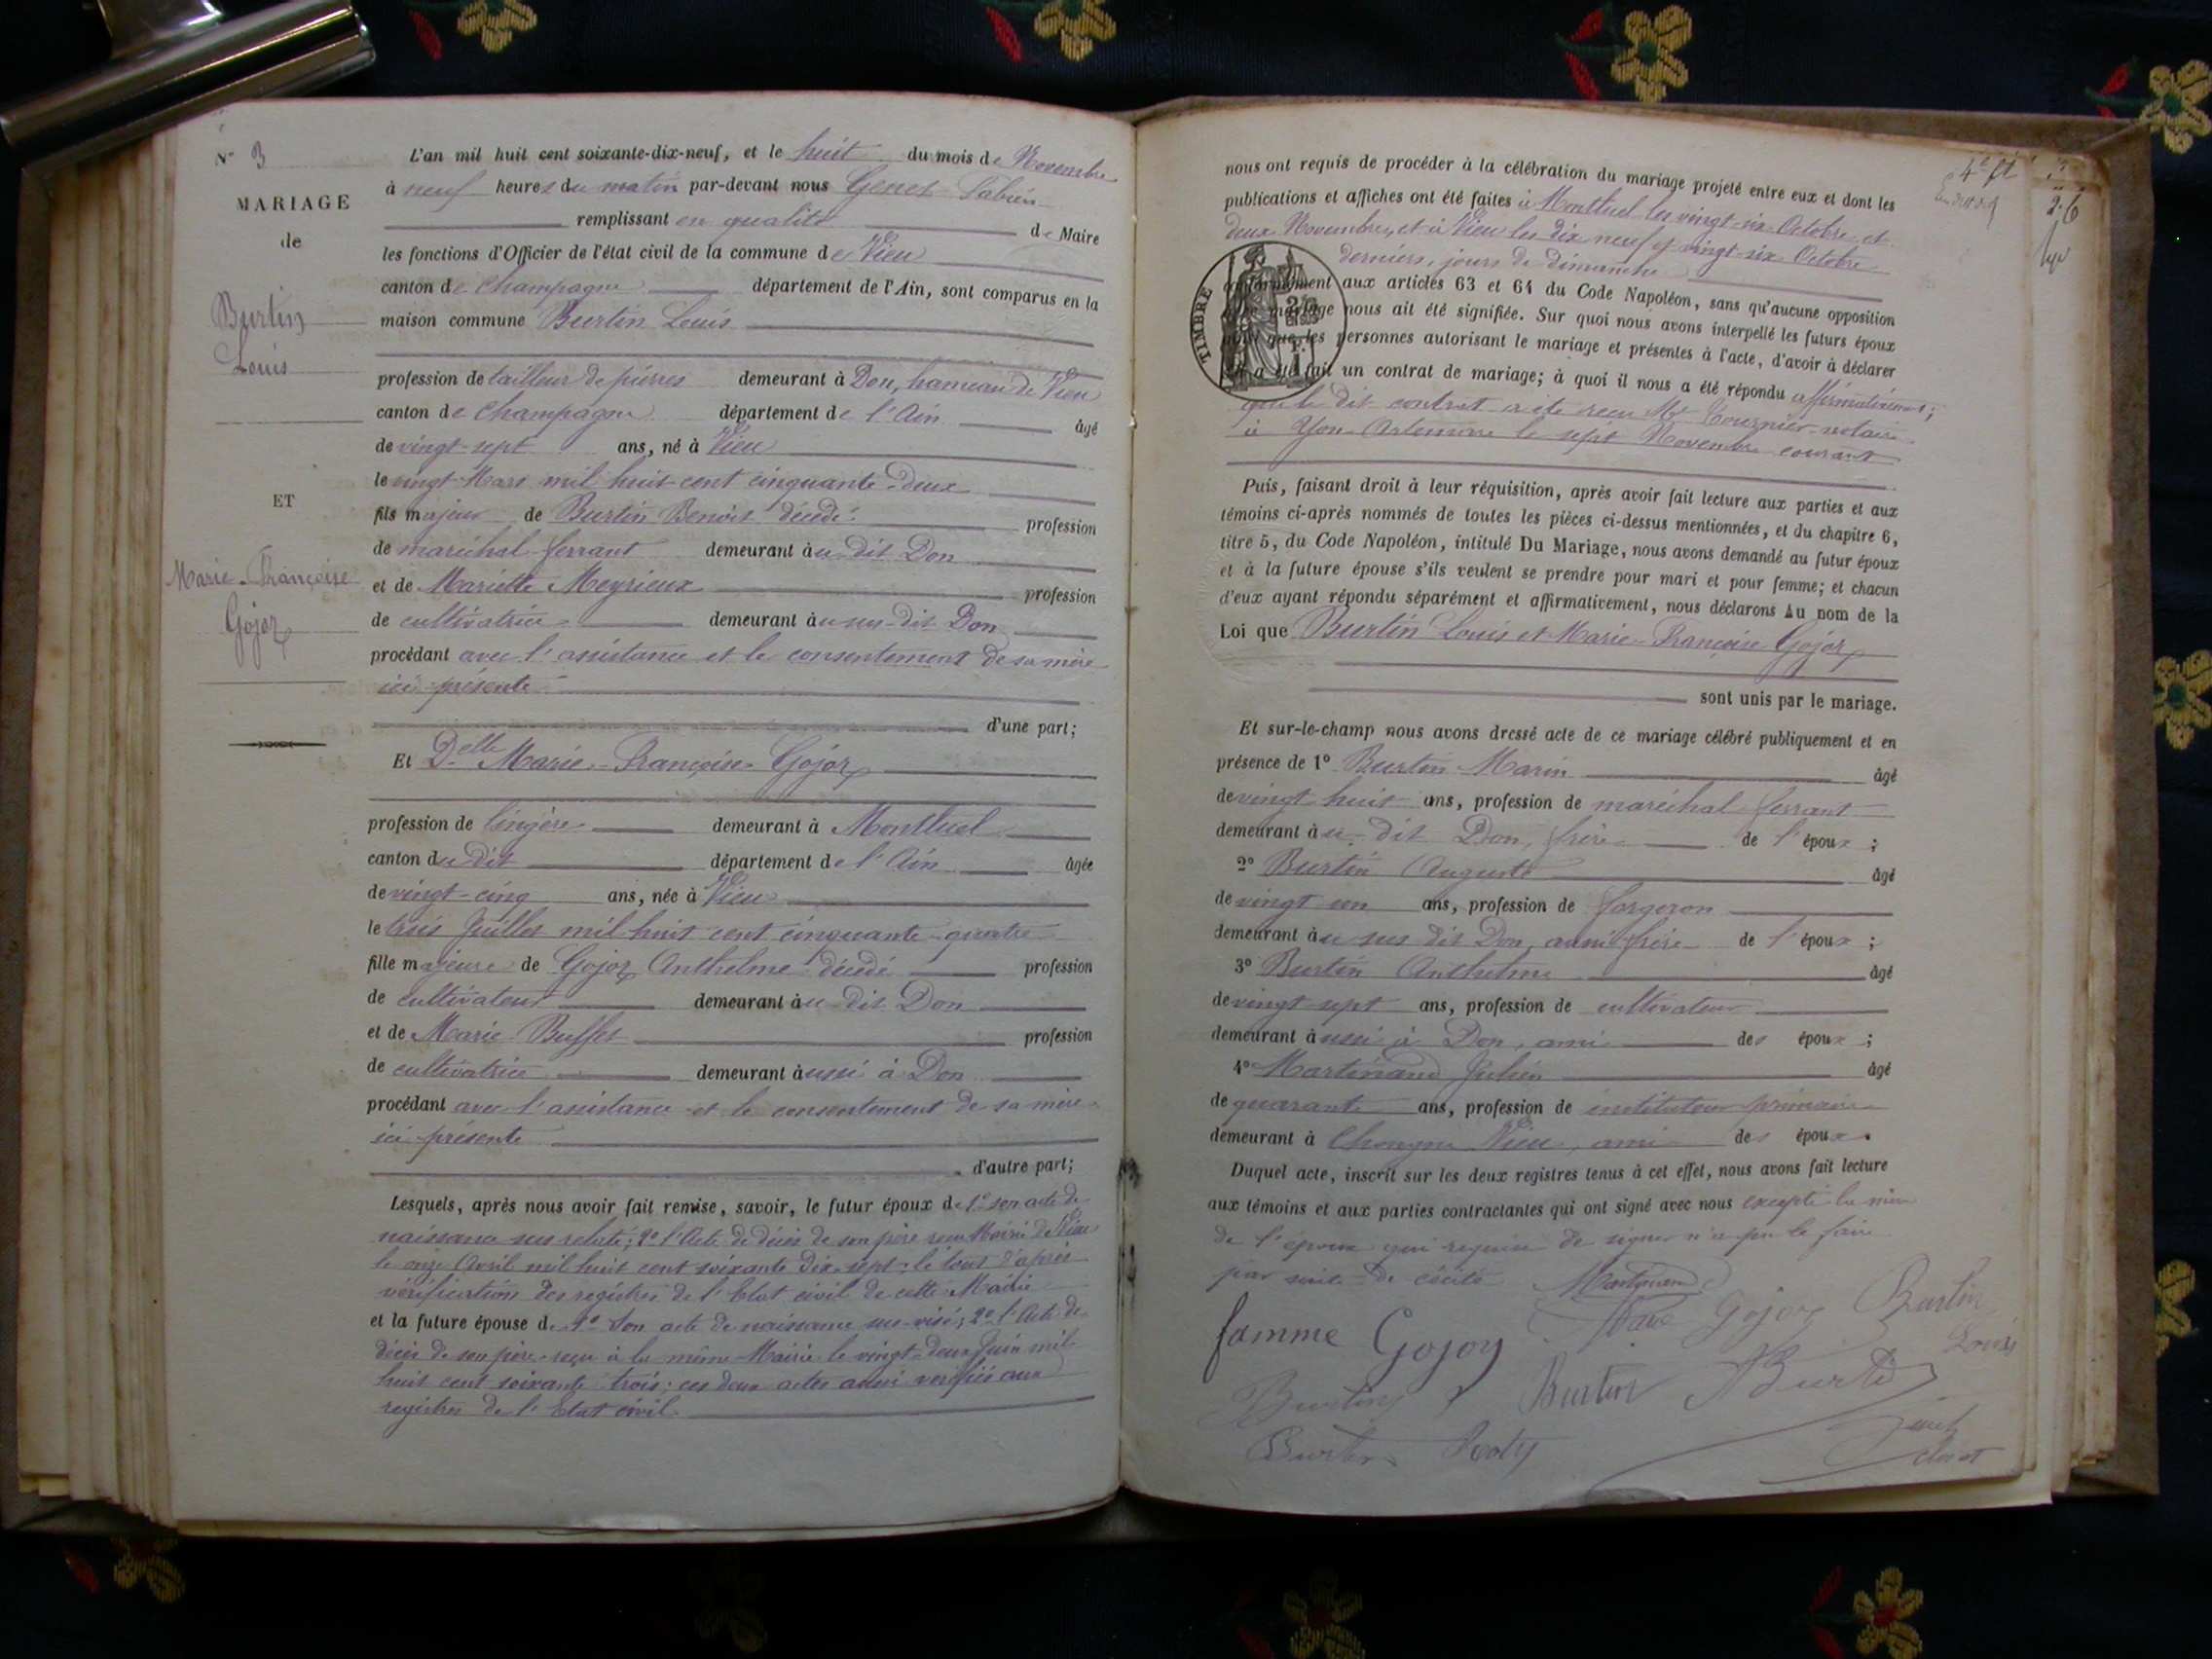 N° 3
MARIAGE
de
Burtin
Louis
ET
Marie-Françoise
Gojoz
L'an mil huit cent soixante-dix-neuf, et le huit du mois de Novembre
à neuf heures du matin par-devant nous Genet Fabien
remplissant en qualité de Maire
les fonctions d'Officier de l'état civil de la commune de Vieu
canton de Champagne département de l'Ain, sont comparus en la
maison commune Burtin Louis
profession de tailleur de pierres demeurant à Don, hameau de Vieu
canton de Champagne département de l'Ain âgé
de vingt-sept ans, né à Vieu
le vingt Mars mil huit cent cinquante-deux
fils majeur de Burtin Benoit décédé profession
de maréchal ferrant demeurant au dit Don
et de Mariette Meyrieux profession
de cultivatrice demeurant au sus-dit Don
procédant avec l'assistance et le consentement de sa mère
ici présente
d'une part;
Et Delle Marie-Françoise Gojoz
profession de lingère demeurant à Montluel
canton du dit département de l'Ain âgée
de vingt-cinq ans, née à Vieu
le trois Juillet mil huit cent cinquante-quatre
fille majeure de Gojoz Anthelme décédé profession
de cultivateur demeurant au dit Don
et de Marie Buffet profession
de cultivatrice demeurant aussi à Don
procédant avec l'assistance et le consentement de sa mère
ici présente
d'autre part;
Lesquels, après nous avoir fait remise, savoir, le futur époux de 1° son acte de
naissance sus relaté; 2° l'Acte de décès de son père reçu Mairie de Vieu
le onze Avril mil huit cent soixante dix-sept; le tout d'après
vérification des registres de l'Etat civil de cette Mairie
et la future épouse de 1° Son acte de naissance sus-visé; 2° l'Acte de
décès de son père reçu à la même Mairie le vingt-deux Juin mil
huit cent soixante trois; ces deux actes aussi vérifiés aux
registres de l'Etat civil.
4e ft
2.6
nous ont requis de procéder à la célébration du mariage projeté entre eux et dont les
publications et affiches ont été faites à Montluel les vingt-six Octobre et
deux Novembre, et à Vieu les dix neuf et vingt-six Octobre
derniers, jours de dimanche
TIMBRE
conformément aux articles 63 et 64 du Code Napoléon, sans qu'aucune opposition
mariage nous ait été signifiée. Sur quoi nous avons interpellé les futurs époux
que les personnes autorisant le mariage et présentes à l'acte, d'avoir à déclarer
a été fait un contrat de mariage; à quoi il nous a été répondu affirmativement;
que le dit contrat a été reçu Me Tournier notaire
à Yon-Artemare le sept Novembre courant
Puis, faisant droit à leur réquisition, après avoir fait lecture aux parties et aux
témoins ci-après nommés de toutes les pièces ci-dessus mentionnées, et du chapitre 6,
titre 5, du Code Napoléon, intitulé Du Mariage, nous avons demandé au futur époux
et à la future épouse s'ils veulent se prendre pour mari et pour femme; et chacun
d'eux ayant répondu séparément et affirmativement, nous déclarons Au nom de la
Loi que Burtin Louis et Marie-Françoise Gojoz
sont unis par le mariage.
Et sur-le-champ nous avons dressé acte de ce mariage célébré publiquement et en
présence de 1° Burtin Marin âgé
de vingt huit ans, profession de maréchal ferrant
demeurant au dit Don, frère de l'époux;
2° Burtin Auguste âgé
de vingt un ans, profession de forgeron
demeurant au sus dit Don, aussi frère de l'époux;
3° Burtin Anthelme âgé
de vingt sept ans, profession de cultivateur
demeurant aussi à Don, ami des époux;
4° Martinand Julien âgé
de quarante ans, profession de instituteur primaire
demeurant à Chongne Vieu, ami des époux.
Duquel acte, inscrit sur les deux registres tenus à cet effet, nous avons fait lecture
aux témoins et aux parties contractantes qui ont signé avec nous excepté la mère
de l'époux qui requise de signer n'a pu le faire
par suite de cécité Martinand
famme Gojoy Gojoz Burtin
Louis
Burtin Burtin Burtin
Burtin